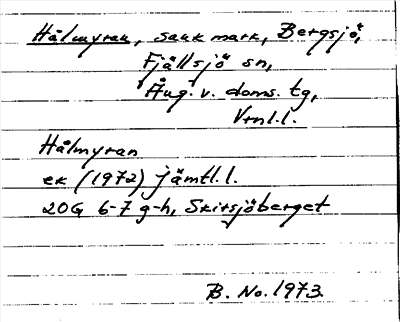 Hålmyran, sank mark, Bergsjö,
Fjällsjö sn,
Ång. v. doms. tg,
Vrnl.l.
Hålmyran
ek (1972) Jämtl.l.
20G 6-7 g-h, Skirsjöberget
B. No. 1973